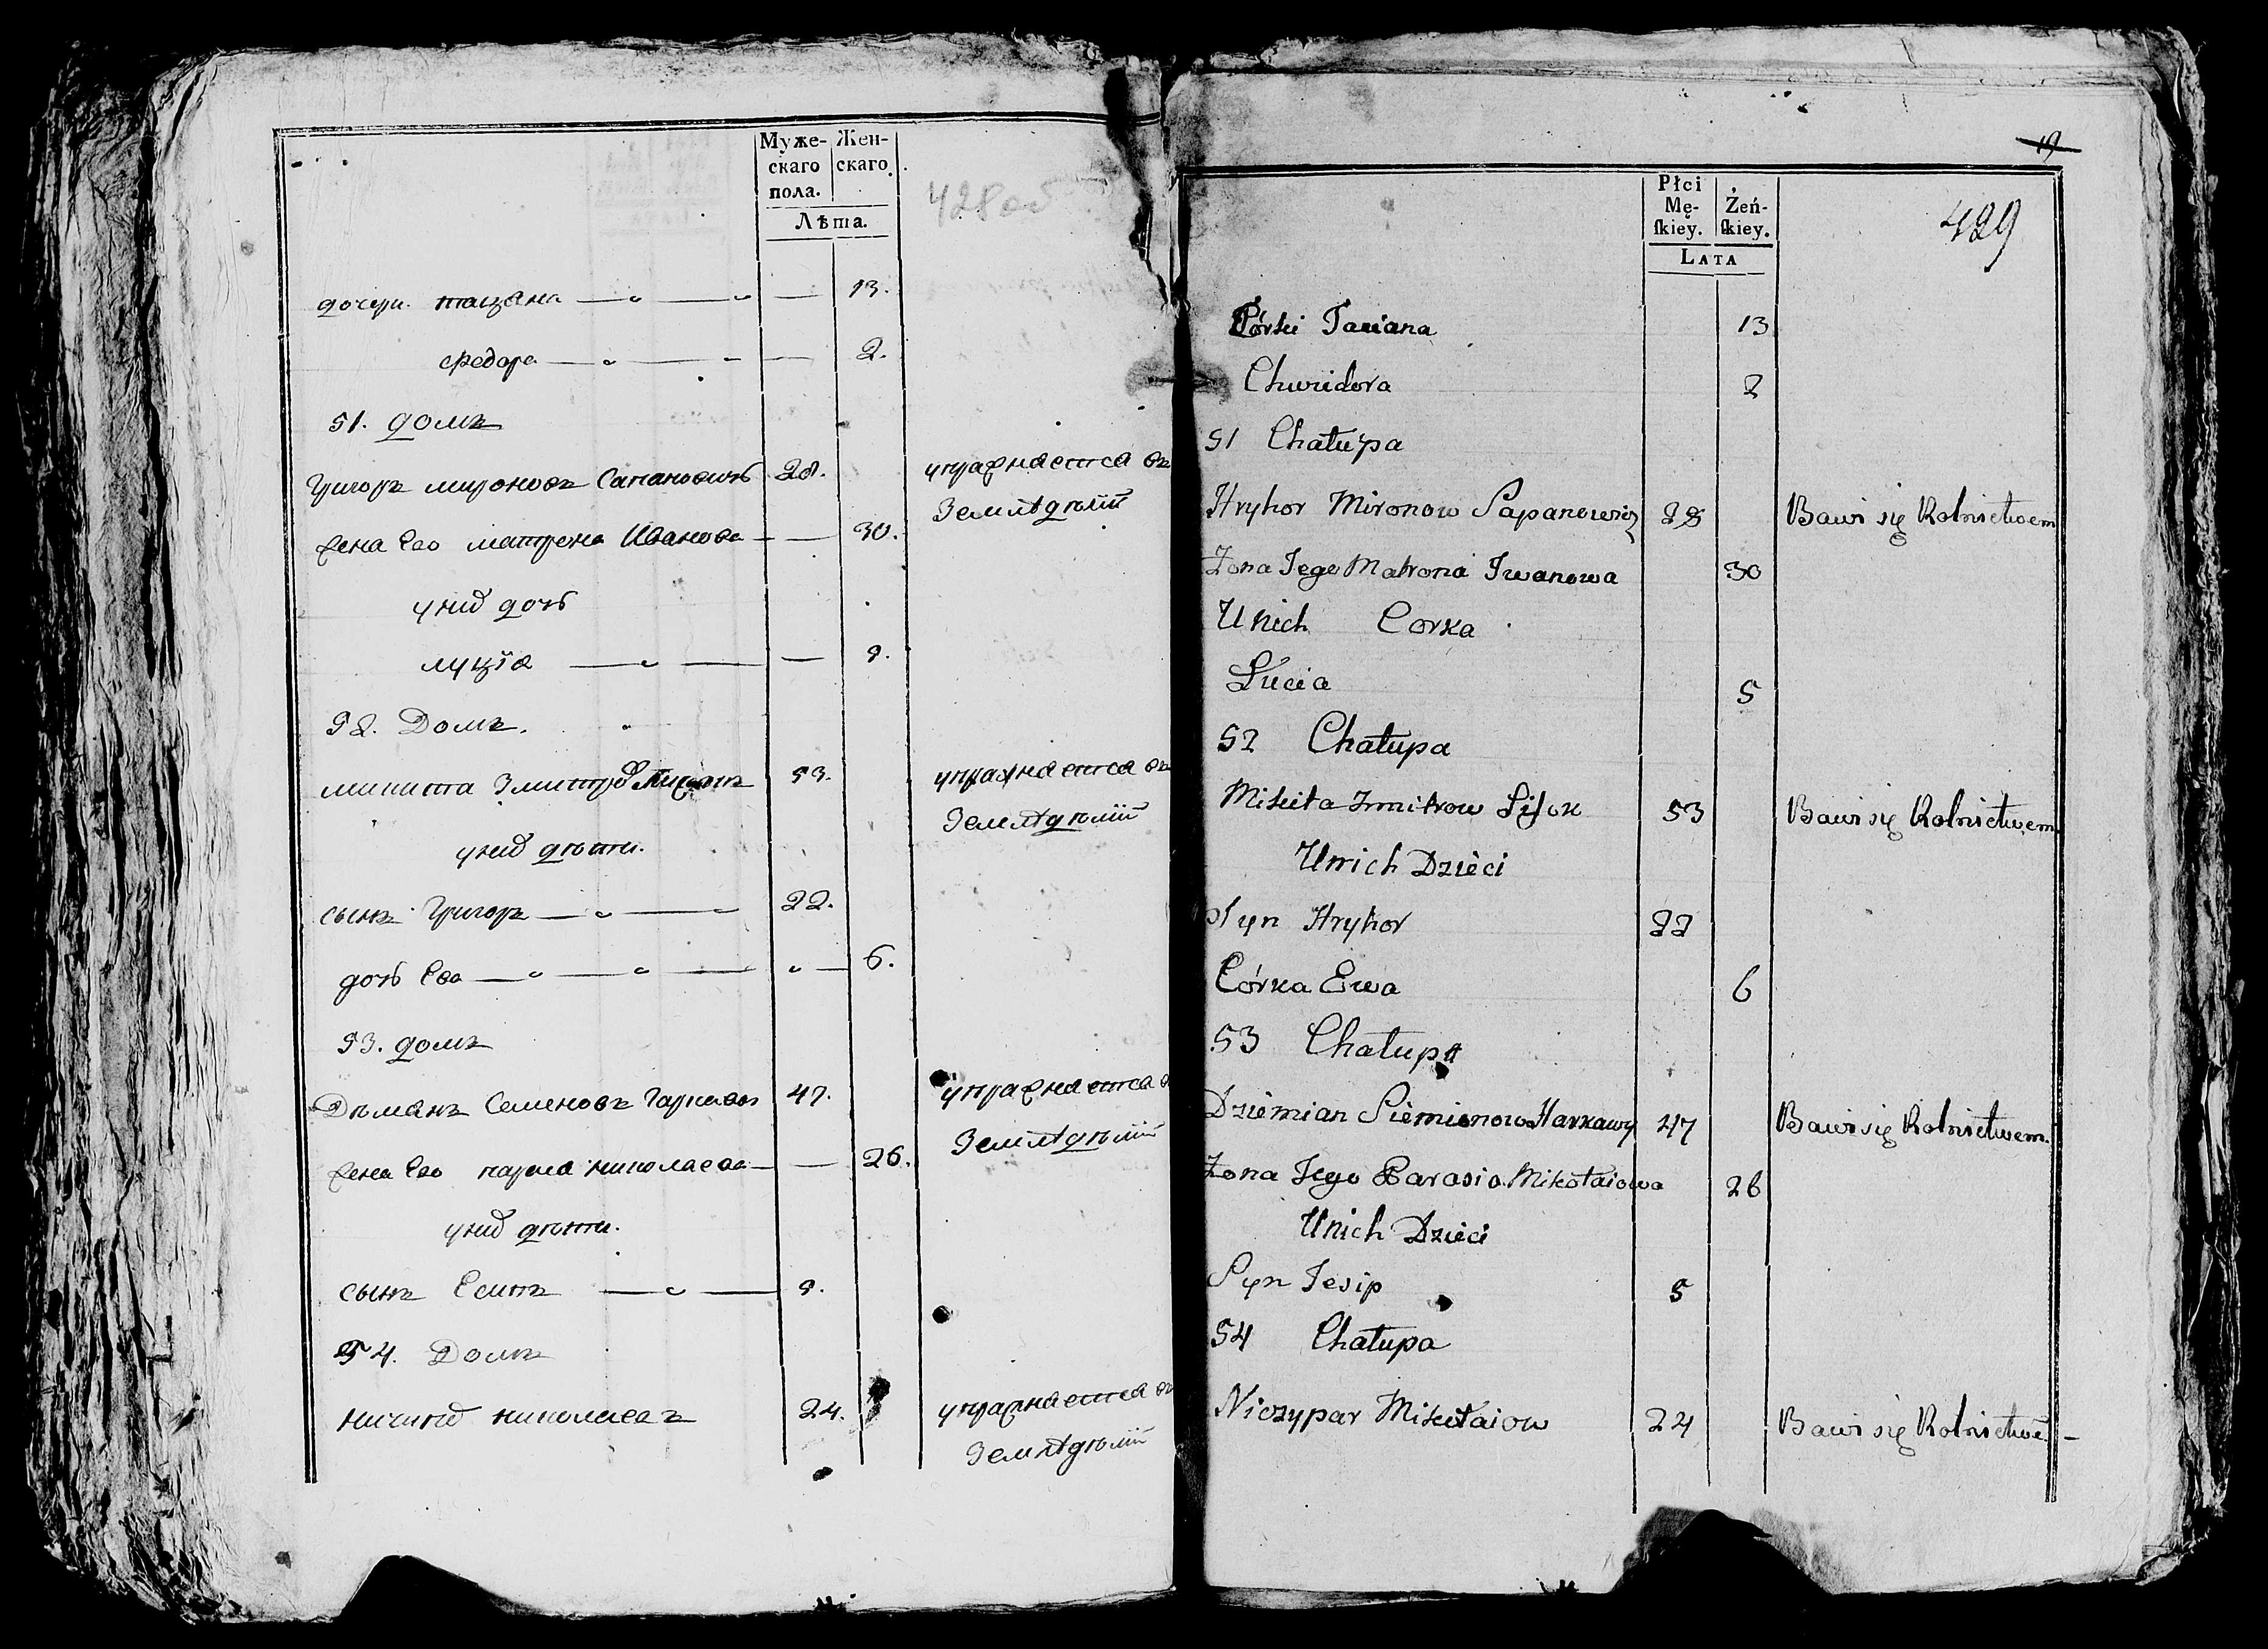 Муже- Жен-
скаго скаго.
пола.
Лѣта.
428 об
дочери. тацѣана 13.
федора 2.
51. домъ
Григоръ мироновъ Сапановичъ 28. упражняется въ
Земледѣлїи
жена Его матрена Иванова 30.
у них дочь
луцїя 5.
52. Домъ.
микита Змитров 53. упражняется въ
Земледѣлїи
у них дѣти.
сынъ Григоръ 22.
дочь Ева 6.
53. домъ
Дѣманъ Семеновъ Гаркавы 47. упражняется в
Земледѣлїи
жена Его николаева 26.
у них дѣти.
сынъ Есипъ 5.
54. Домъ
ничипо николаевъ 24. упражняется въ
Земледѣлїи
19
Płci Żeń-
Mę- ſkiey.
ſkiey.
LATA
429
Córki Taciana 13
Chwiedora 2
51 Chałupa
Hryhor Mironow Sapanowicz 28 Bawi się Rolnictwem
Żona Jego Matrona Iwanowa 30
U nich Corka
Łucia 5
52 Chałupa
Mikita Zmitrow 53 Bawi się Rolnictwem
U nich Dzieci
Syn Hryhor 22
Córka Ewa 6
53 Chałupa
Dziemian Siemionow Harkawy 47 Bawi się Rolnictwem.
Żona Jego Parasia Mikołaiowa 26
U nich Dzieci
Syn Jesip 5
54 Chałupa
Niczypar Mikołaiow 24 Bawi się Rolnictwē